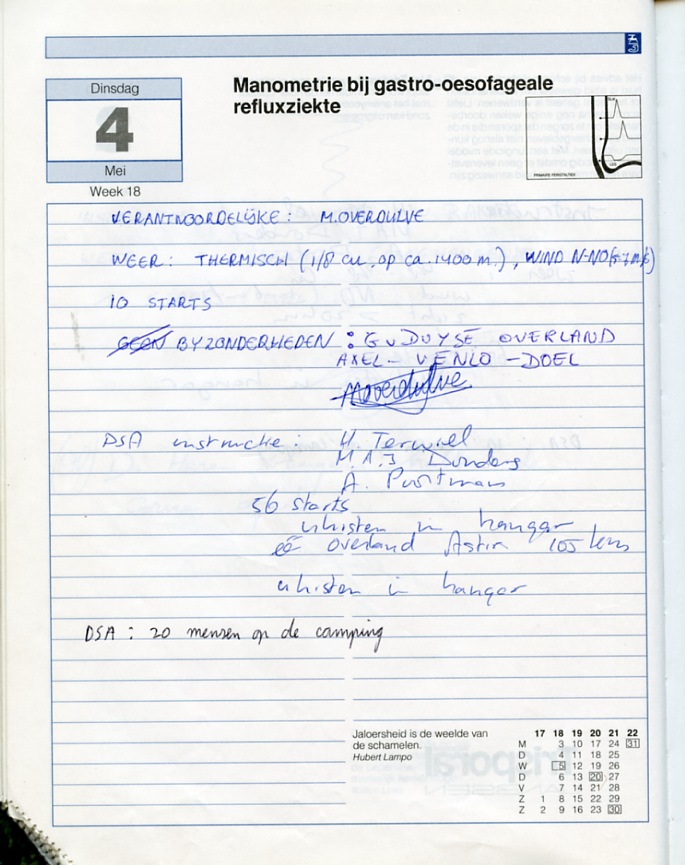 Dinsdag
4
Mei
Week 18
Manometrie bij gastro-oesofageale
refluxziekte
PRIMAIRE PERISTALTIEK
VERANTWOORDELIJKE : M.OVERDULVE
WEER : THERMISCH (1/8 cu. op ca. 1400 m.), WIND N-NO(5-7 m/s)
10 STARTS
GEEN BYZONDERHEDEN : G V DUYSE OVERLAND
AXEL - VENLO - DOEL
Moverdulve
DSA instructie : H. Terwiel
M.A.J Donders
A. Poortmans
56 starts
whisten in hangar
éé overland Astir 105 kms
whisten in hangar
DSA : 20 mensen op de camping
Jaloersheid is de weelde van
de schamelen.
Hubert Lampo
17 18 19 20 21 22
M 3 10 17 24 31
D 4 11 18 25
W 5 12 19 26
D 6 13 20 27
V 7 14 21 28
Z 1 8 15 22 29
Z 2 9 16 23 30